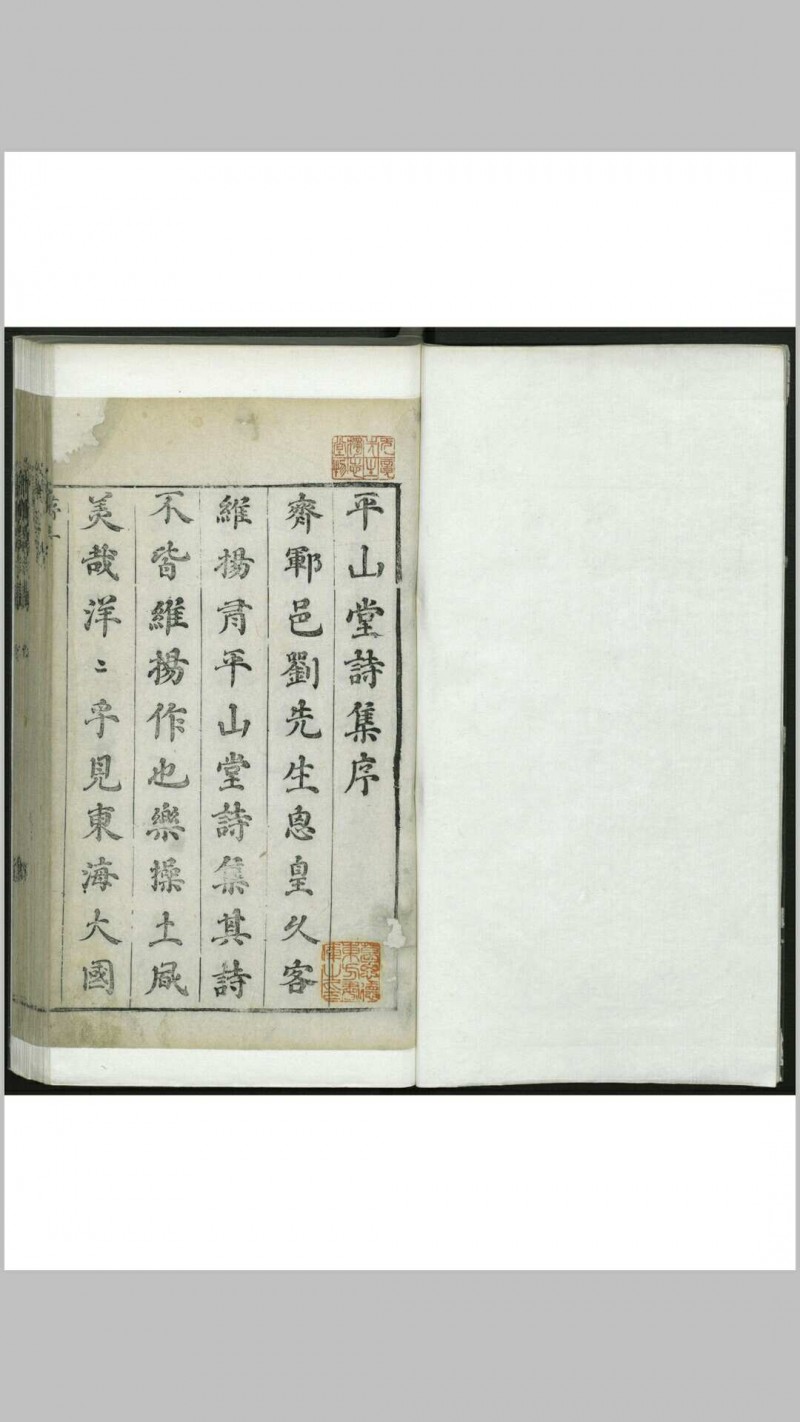 平山堂詩集序
齊鄆邑劉先生息皇久客
維揚有平山堂詩集其詩
不皆維揚作也樂操土風
美哉洋〻乎見東海大國
序一